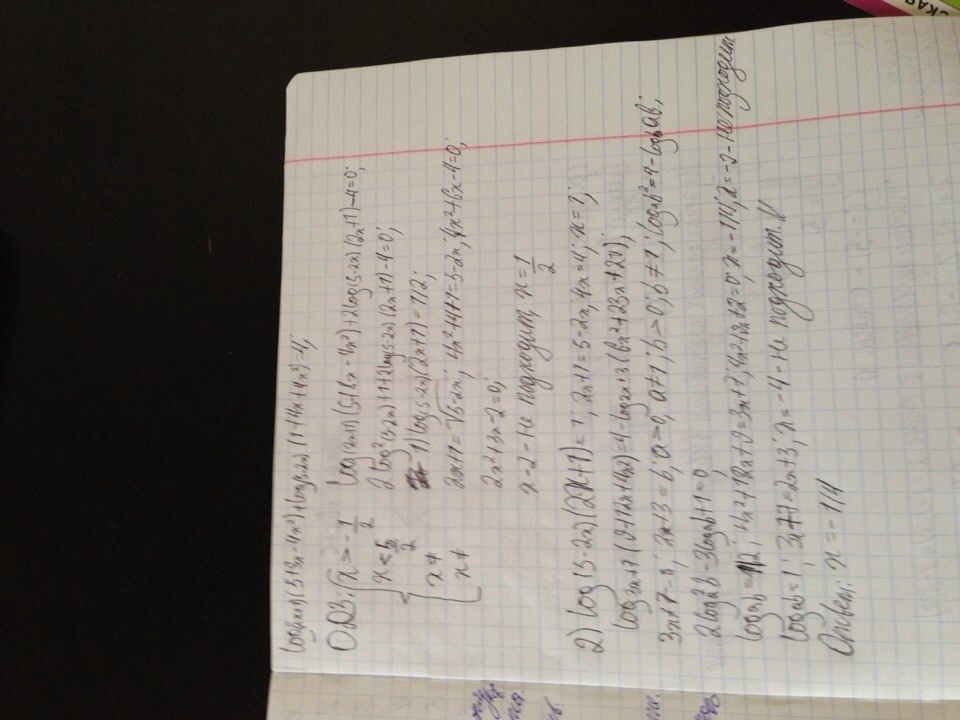 log(2x+1)(5+8x-4x²)+log(5-2x)(1+4x+4x²)=4;
ОДЗ: {x>-1/2
x<5/2
x≠
x≠
log(2x+1)(5+8x-4x²)+2log(5-2x)(2x+1)-4=0;
2log²(5-2x)+1+2log(5-2x)(2x+1)-4=0;
1) log(5-2x)(2x+1)=1/2;
2x+1=√5-2x; 4x²+4x+1=5-2x; 4x²+6x-4=0;
2x²+3x-2=0;
x=2-не подходит, x=1/2
2) log(5-2x)(2x+1)=1; 2x+1=5-2x; 4x=4; x=1;
log3x+7(9+12x+4x²)=4-log2x+3(6x²+23x+21);
3x+7=a; 2x+3=b; a>0; a≠1; b>0; b≠1; logab²=4-logbab;
2logab-3logab+1=0
logab=1/2; 4x²+12x+9=3x+7; 4x²+9x+2=0; x=-1/4; x=-2-не подходит
logab=1; 3x+7=2x+3; x=-4-не подходит.
Ответ: x=-1/4